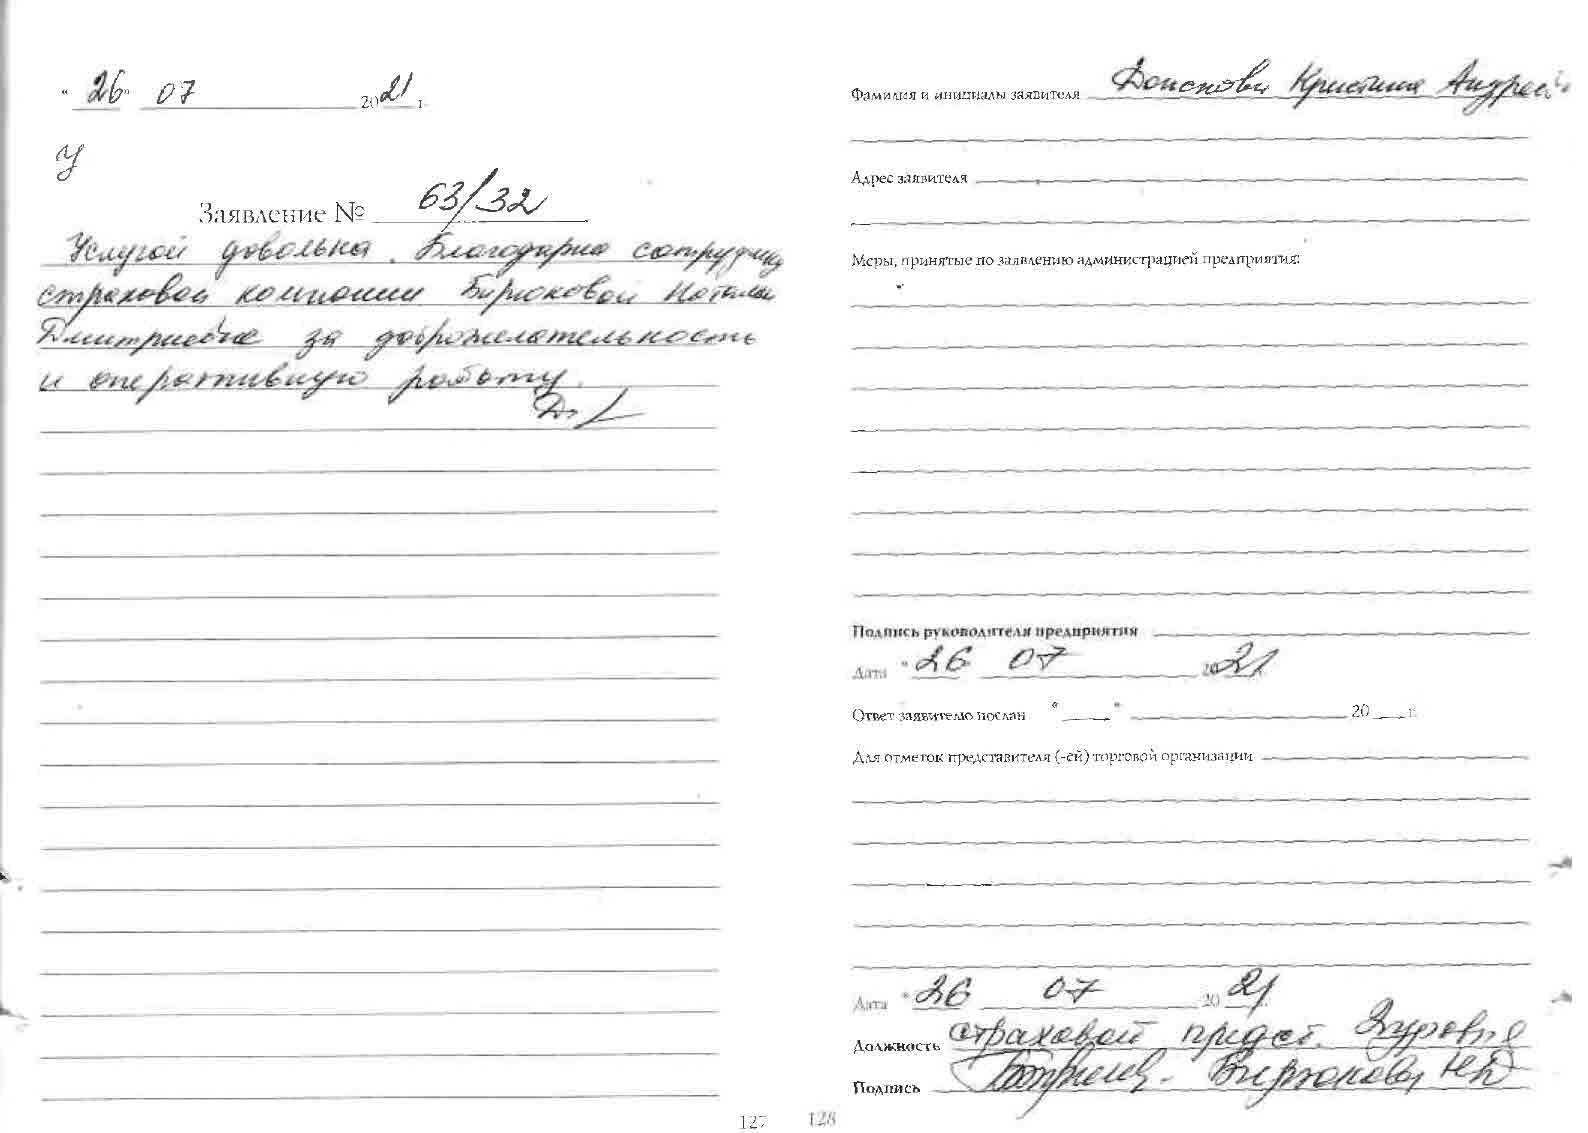 "26" 07 2021 г.
У
Заявление № 63/32
Услугой довольна. Благодарю сотрудниц
страховой компании Бирюковой Наталье
Дмитриевне за доброжелательность
и оперативную работу.
127
Фамилия и инициалы заявителя Кристина Андрее
Адрес заявителя
Меры, принятые по заявлению администрацией предприятия:
Подпись руководителя предприятия
Дата "26 07 2021
Ответ заявителю послан " " 20 г.
Для отметок представителя (-ей) торговой организации
Дата "26 07 2021
Должность страховой предст. уровня
Подпись Бирюкова НД
128